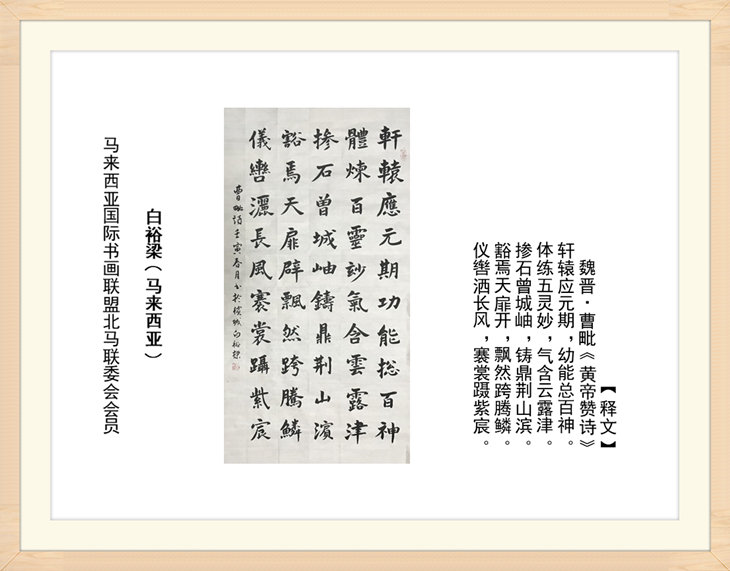 【释文】
魏晋·曹毗《黄帝赞诗》
轩辕应元期，幼能总百神。
体练五灵妙，气含云露津。
掺石曾城岫，铸鼎荆山滨。
豁焉天扉开，飘然跨腾鳞。
仪辔洒长风，褰裳蹑紫宸。
軒轅應元期功能捴百神
體煉百靈玅氣含雲露津
掺石曾城岫鑄鼎荆山濱
豁焉天扉辟飄然跨騰鱗
儀轡灑長風褰裳躡紫宸
曹毗詩壬寅春月书於槟城白裕梁
白裕梁（马来西亚）
马来西亚国际书画联盟北马联委会会员